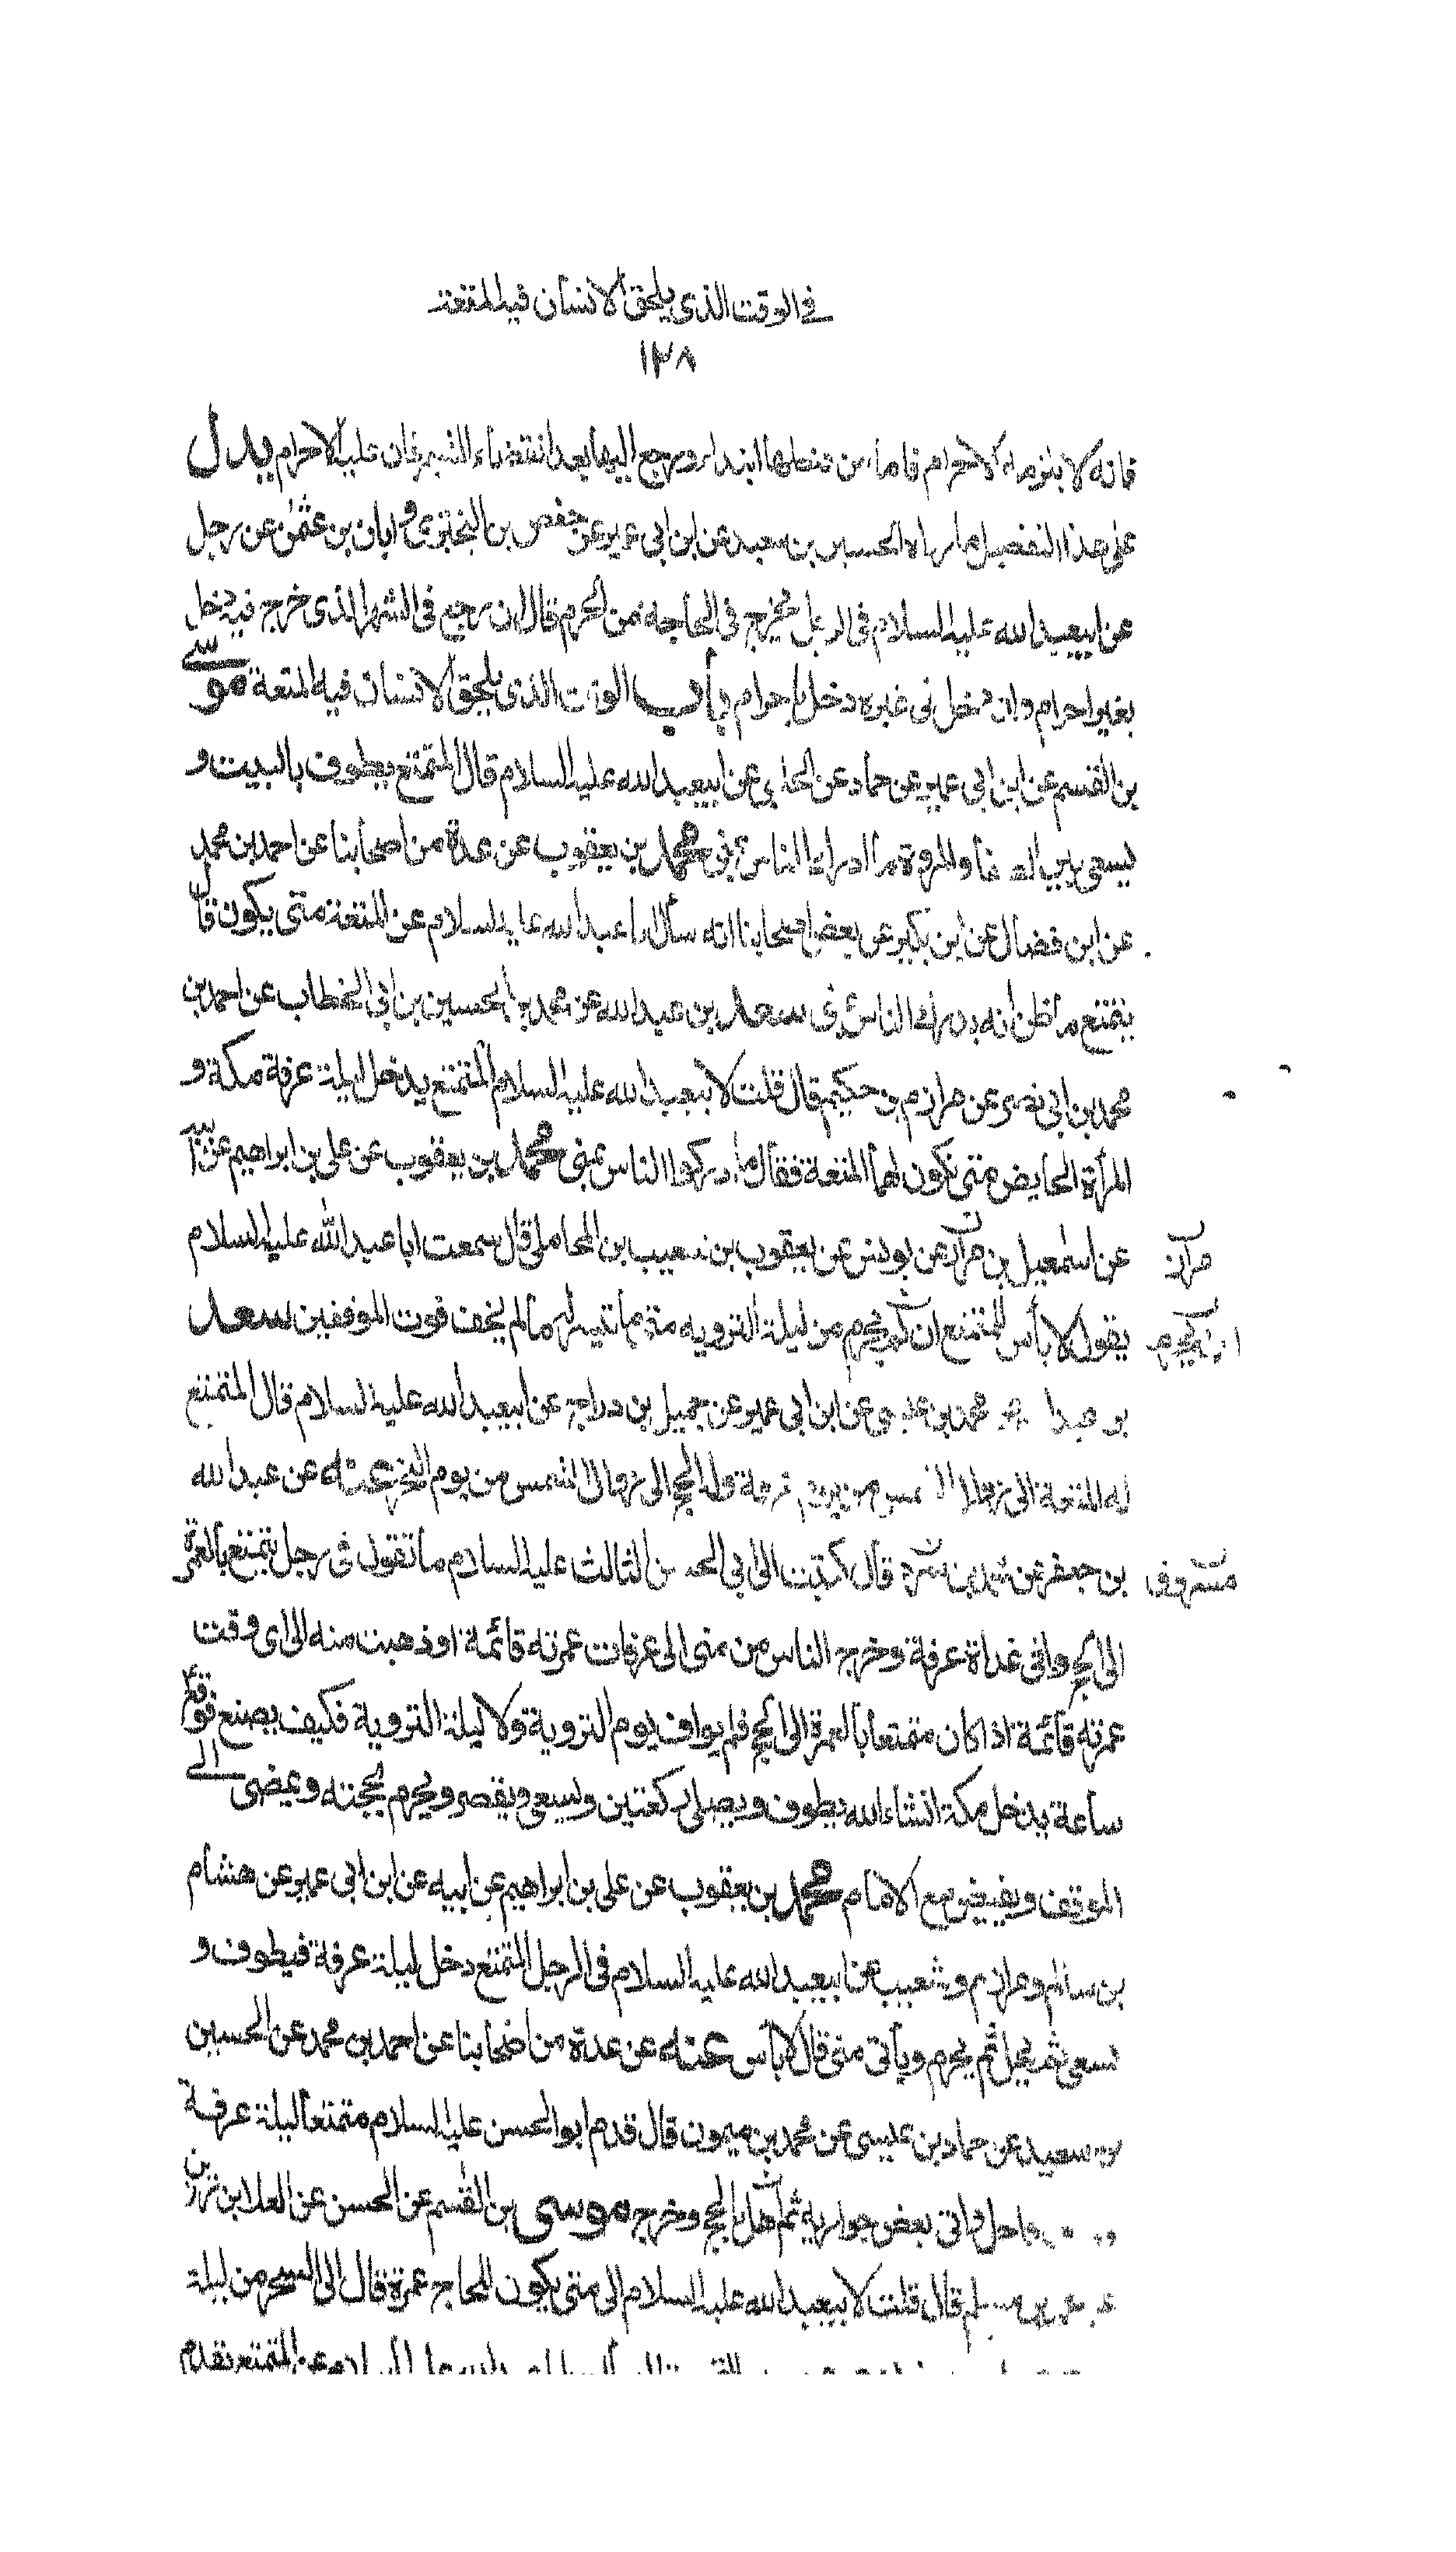 في الوقت الذى يلحق الانسان فيه المتعة
١٢٨
فانه لا يلزمه الاحرام فاما من دخلها ابتداء ورجع اليها بعد انقضاء الشهر فان عليه الاحرام يدل
على هذا التفصيل ما رواه الحسين بن سعيد عن ابن ابى عمير عن حفص بن البخترى و ابان بن عثمن عن رجل
عن ابيعبد الله عليه السلام فى الرجل يخرج فى الحاجة من الحرم قال ان رجع فى الشهر الذى خرج فيه دخل
بغير احرام وان دخل فى غيره دخل باحرام باب الوقت الذى يلحق الانسان فيه المتعة موسى
بن القسم عن ابن ابى عمير عن حماد عن الحلبى عن ابيعبد الله عليه السلام قال المتمتع يطوف بالبيت و
يسعى بين الصفا والمروة ما ادرك الناس بمنى محمد بن يعقوب عن عدة من اصحابنا عن احمد بن محمد
عن ابن فضال عن ابن بكير عن بعض اصحابنا انه سأل ابا عبد الله عليه السلام عن المتعة متى يكون قال
يتمتع ما ظن انه يدرك الناس بمنى سعد بن عبد الله عن محمد بن الحسين بن ابى الخطاب عن احمد بن
محمد بن ابى نصر عن مرازم بن حكيم قال قلت لابيعبد الله عليه السلام المتمتع يدخل ليلة عرفة مكة و
المرأة الحايض متى تكون لهما المتعة فقال ما ادركوا الناس بمنى محمد بن يعقوب عن على بن ابراهيم عن ابيه
عن اسمعيل بن مرار عن يونس عن يعقوب بن شعيب بن المحاملى قال سمعت ابا عبد الله عليه السلام
مرار
يقول لا بأس للمتمتع ان لم يحرم من ليلة التروية متى ما تيسر له ما لم يخف فوت الموقفين سعد
بن عبد الله عن محمد بن عيسى عن ابن ابى عمير عن جميل بن دراج عن ابيعبد الله عليه السلام قال المتمتع
له المتعة الى زوال الشمس من يوم عرفة وله الحج الى زوال الشمس من يوم النحر عنه عن عبد الله
بن جعفر عن محمد بن سرد قال كتبت الى ابى الحسن الثالث عليه السلام ما تقول فى رجل يتمتع بالعمرة
مسروف
الى الحج وافى غداة عرفة وخرج الناس من منى الى عرفات عمرته قائمة او ذهبت منه الى اى وقت
عمرته قائمة اذا كان متمتعا بالعمرة الى الحج فلم يواف يوم التروية ولا ليلة التروية فكيف يصنع فوقع
ساعة يدخل مكة انشاء الله يطوف ويصلى ركعتين ويسعى ويقصر ويحرم بحجته ويمضى الى
الموقف ويفيض مع الامام محمد بن يعقوب عن على بن ابراهيم عن ابيه عن ابن ابى عمير عن هشام
بن سالم ومرازم وشعيب عن ابيعبد الله عليه السلام فى الرجل المتمتع دخل ليلة عرفة فيطوف و
يسعى ثم يحل ثم يحرم ويأتى منى قال لا بأس عنه عن عدة من اصحابنا عن احمد بن محمد عن الحسين
بن سعيد عن حماد بن عيسى عن محمد بن ميمون قال قدم ابو الحسن عليه السلام متمتعا ليلة عرفة
واحل واتى بعض جواريه ثم اهل بالحج وخرج موسى بن القسم عن الحسن عن العلا بن رزين
عن محمد بن مسلم قال قلت لابيعبد الله عليه السلام الى متى يكون للحاج عمرة قال الى السحر من ليلة
عليه السلام عن المتمتع يقدم